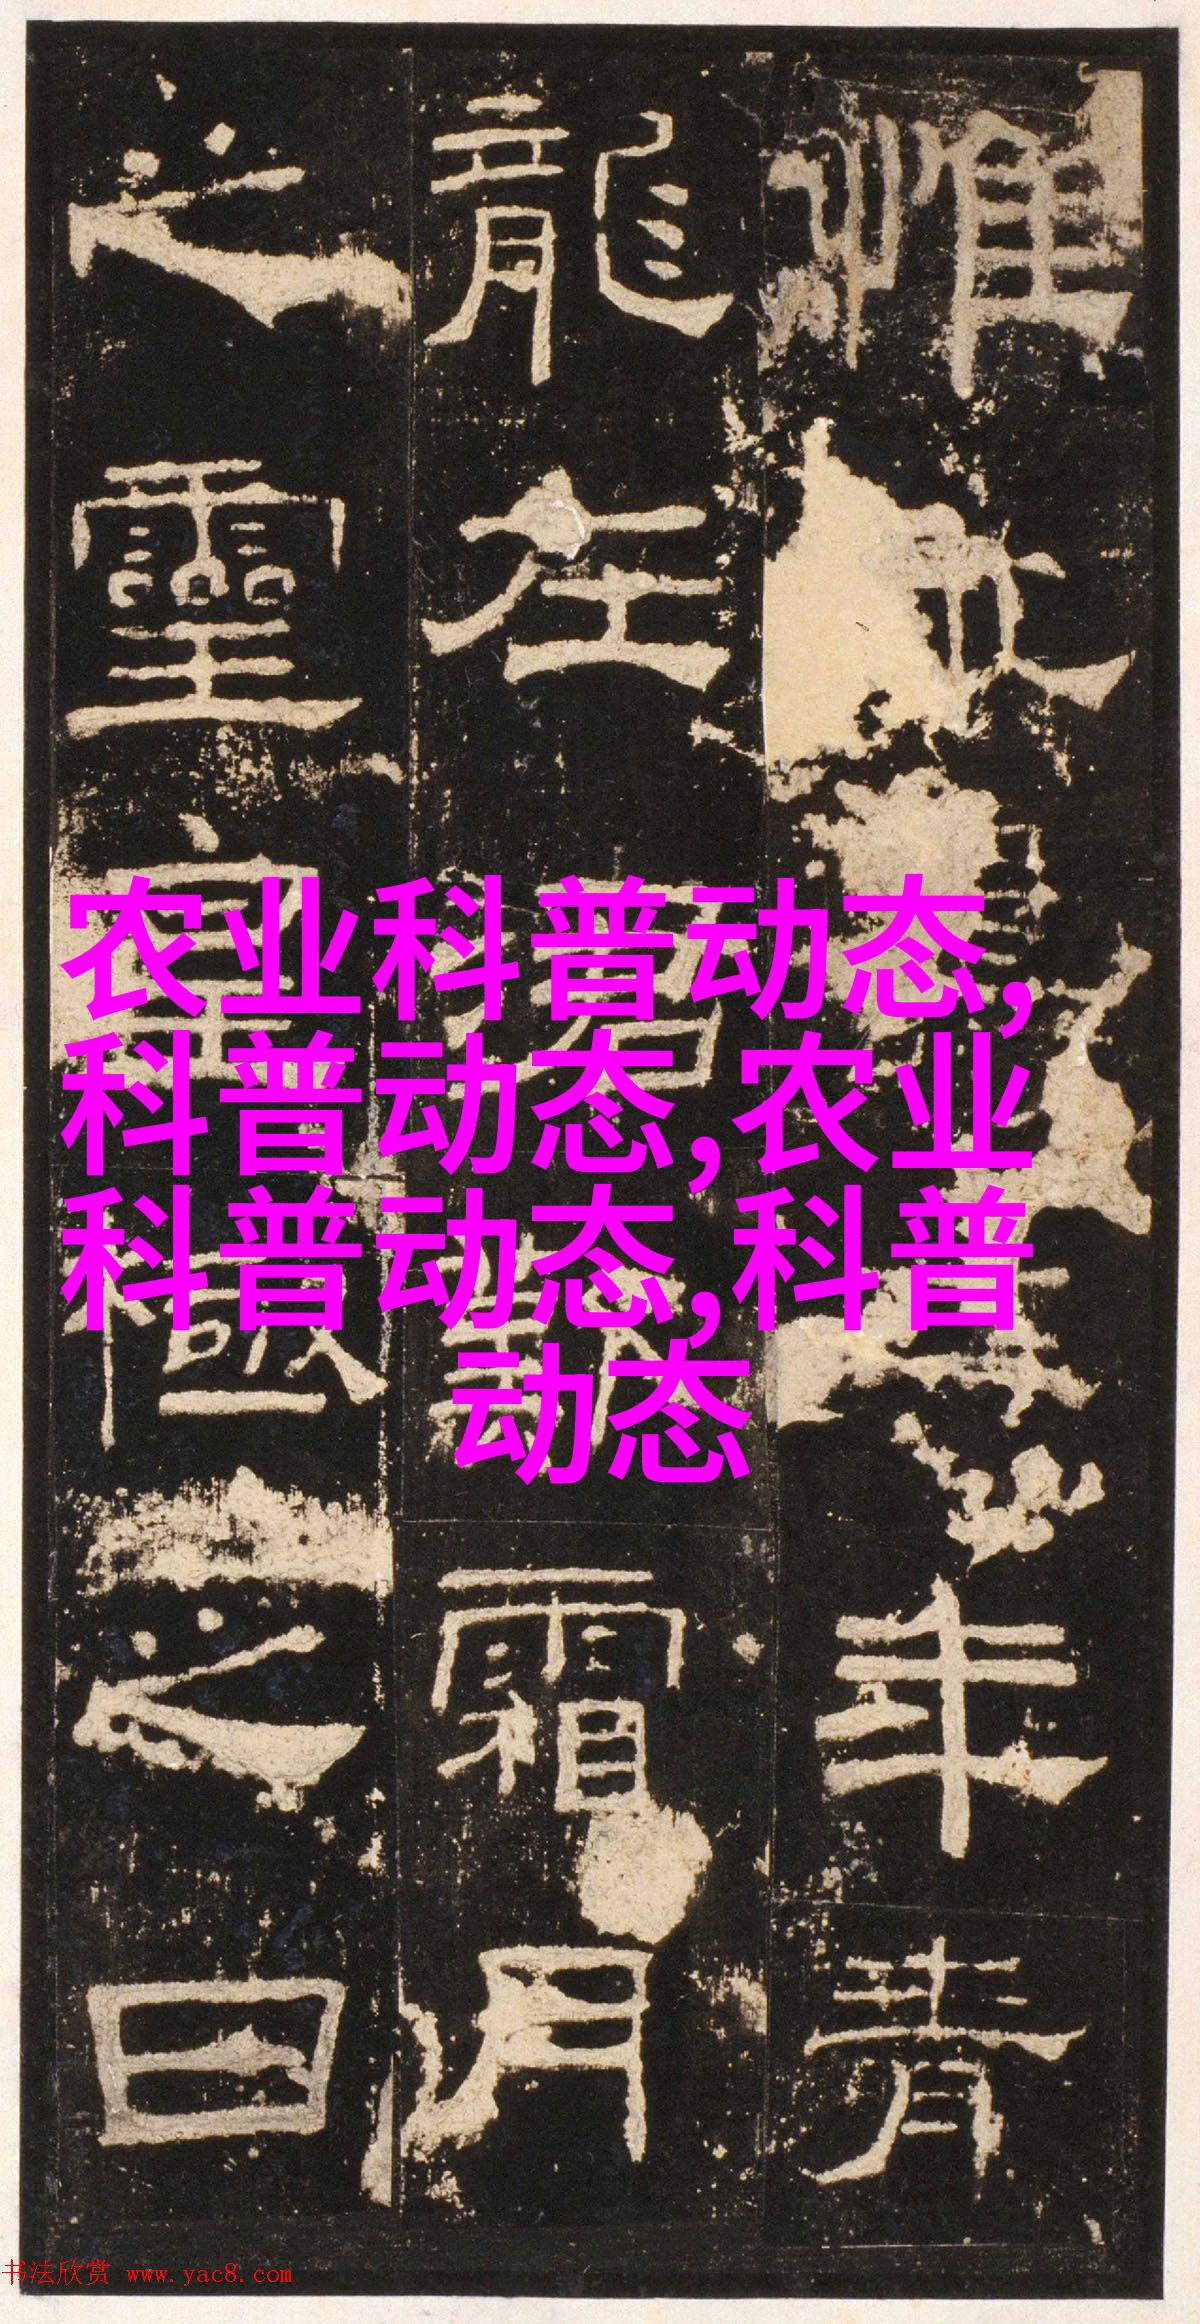 惟年青
龍在涒歎霜月
之靈皇極之日
农业科普动态,
科普动态,农业
科普动态,科普
动态
书法欣赏 www.yac8.com